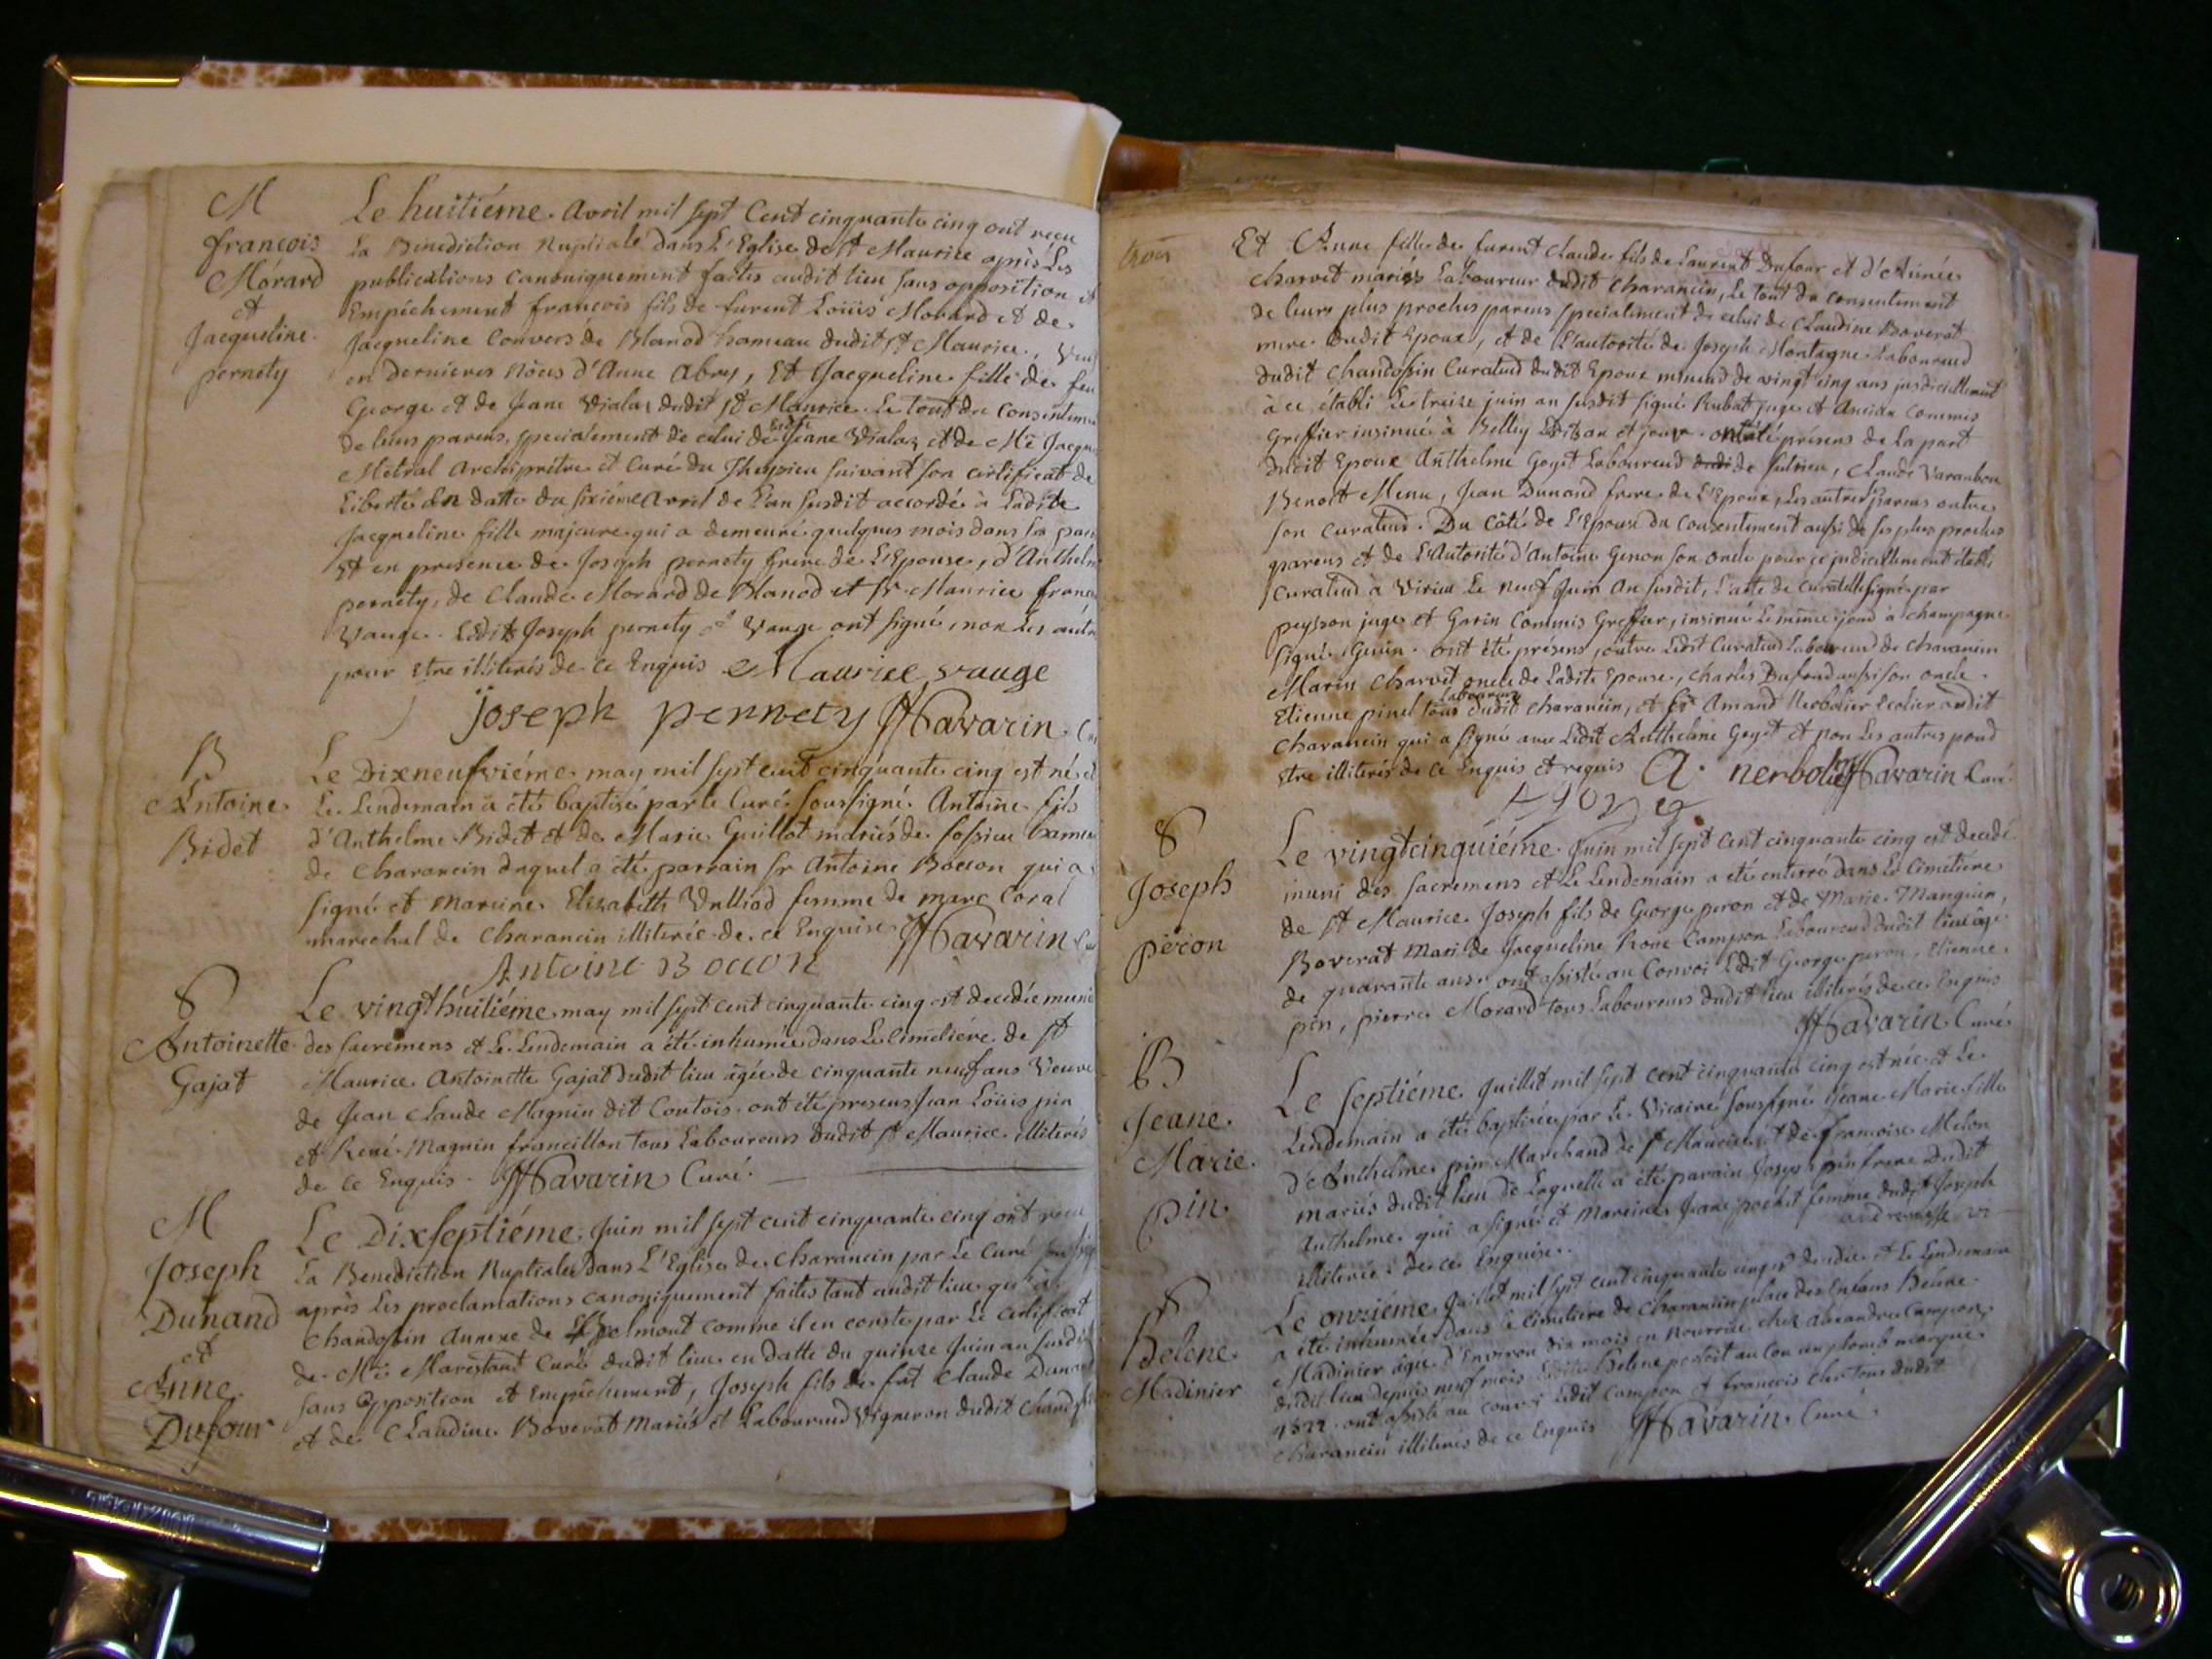 M
françois
Mórard
et
Jacqueline
pernety
Le huitiéme Avril mil sept Cent cinquante cinq ont reçu
La Bénédiction Nuptiale dans L'Eglise de St Maurice après Les
publications canoniquement faites audit lieu sans opposition et
Empéchement françois fils de furent Loüis Morard et de
Jacqueline Convers de Blanod hameau dudit St Maurice, 
en dernieres nôces d'Anne Abry, Et Jacqueline fille de feu
George et de Jeane Vialaz dudit St Maurice Le tout du
de leurs parens, specialement de celui de ladite Jeane Vialaz et de Me
Métral Archiprêtre et Curé du suivant son certificat de
Liberté en datte du sixiéme Avril de L'an susdit accordé à Ladite
Jacqueline fille majeure qui a demeuré quelques mois dans sa
Et en presence de Joseph pernety frere de L'Epouse, d'
pernety, de Claude Morard de Blanod et Sr Maurice
Vauge. Ledit Joseph pernety et Vauge ont signé, non Les
pour être illiterés de ce Enquis Maurice vauge
joseph pernety Savarin
B
Antoine
Bidet
Le Dixneufviéme may mil sept cent cinquante cinq est né et
Le Lendemain a été baptisé par le Curé soussigné Antoine fils
d'Anthelme Bidet et de Marie Guillot mariés de fossieu
de Charancin duquel a été parrain sr Antoine Bocon qui a
signé et mareine Elisabeth Vulliod femme de marc Coral
marechal de Charancin illiterée de ce Enquise Savarin
Antoine Bocon
S
Antoinette
Gajat
Le vingthuitiéme may mil sept cent cinquante cinq est decedée
des sacremens et Le Lendemain a été inhumée dans Le Cimetiére de St
Maurice Antoinette Gajat dudit lieu agée de cinquante neuf ans Veuve
de Jean Claude Magnin dit Contois ont été presens Jean Loüis pin
et René Magnin francillon tous Laboureurs dudit St Maurice illiterés
de ce Enquis. Savarin Curé.
M
Joseph
Dunand
et
Anne
Dufour
Le Dixseptiéme Juin mil sept cent cinquante cinq ont reçu
La Benediction Nuptiale dans L'Eglise de Charancin par Le Curé
après Les proclamations canoniquement faites tant audit lieu qu'à
Chandossin Annexe de comme il en conste par Le certificat
de Me Marestant Curé dudit lieu en datte du quinze Juin an
sans Opposition et Empéchement, Joseph fils de fut Claude
et de Claudine Boverat Mariés et Laboureur Vigneron dudit
Et Anne fille de furent Claude fils de Laurent Dufour et d'Aimée
Charvet mariés Laboureur dudit Charancin, Le tout du consentement
de leurs plus proches parens specialement de celui de Claudine Boverat
mere dudit Epoux, et de L'autorité de Joseph Montagne Laboureur
dudit Chandossin Curateur dudit Epoux mineur de vingt cinq ans judiciellement
à ce établi Le treize juin an susdit signé Rubat juge et Commis
Greffier insinué à Belley Ledit an et jour. ont été présens de la part
dudit Epoux Anthelme Goyet Laboureur de sutrieu, Claude Varambon
Benoit Menu, Jean Dunand frere de L'Epoux, Les autres Parens outre
son curateur. Du côté de L'Epouse du consentement aussi de ses plus proches
parens et de L'Autorité d'Antoine Genon son oncle pour ce judiciellement établi
Curateur à Virieu Le neuf Juin An susdit, L'acte de curatelle signé par
peysson juge et Garin Commis Greffier, insinué Le même jour à Champagne
signé Genin. ont été présens, outre Ledit Curateur Laboureur de Charancin
Marin Charvet oncle de Ladite Epouse, Charles Dufour aussi son oncle
Etienne pinel tous Laboureurs dudit Charancin, et Sr Amand Nerbolier Ecolier audit
Charancin qui a signé avec Ledit Anthelme Goyet et non Les autres pour
être illiterés de ce Enquis et requis A. nerbolier Savarin Curé
S
Joseph
péron
Le vingtcinquiéme Juin mil sept cent cinquante cinq est decedé
muni des sacremens et Le Lendemain a été enterré dans Le Cimetiére
de St Maurice Joseph fils de George peron et de Marie Manguin,
Boverat Mari de Jacqueline Rone Campon Laboureur dudit lieu âgé
de quarante ans. ont assisté au Convoi Ledit George peron, Etienne
pin, pierre Morard tous Laboureurs dudit lieu illiterés de ce Enquis
Savarin Curé
B
Jeane
Marie
pin
Le septiéme Juillet mil sept cent cinquante cinq est née et Le
Lendemain a été baptisée par Le Vicaire soussigné Jeane Marie fille
d'Anthelme pin Marchand de St Maurice et de françoise Melon
mariés dudit lieu de Laquelle a été parain Joseph pin frere dudit
Anthelme qui a signé et Mareine Jeane pochet femme dudit Joseph
illiterée de ce Enquise.
S
Helene
Madinier
Le onziéme Juillet mil sept cent cinquante cinq est decedée et Le Lendemain
a été inhumée dans Le Cimetiere de Charancin place des Enfans Helene
Madinier âgée d'Environ dix mois en nourrice chez Alexandre Campon
dudit lieu depuis neuf mois Ladite Helene portoit au Cou un plomb marqué
4522. ont assisté au convoi Ledit Campon et françois tous dudit
Charancin illiterés de ce Enquis Savarin Curé.